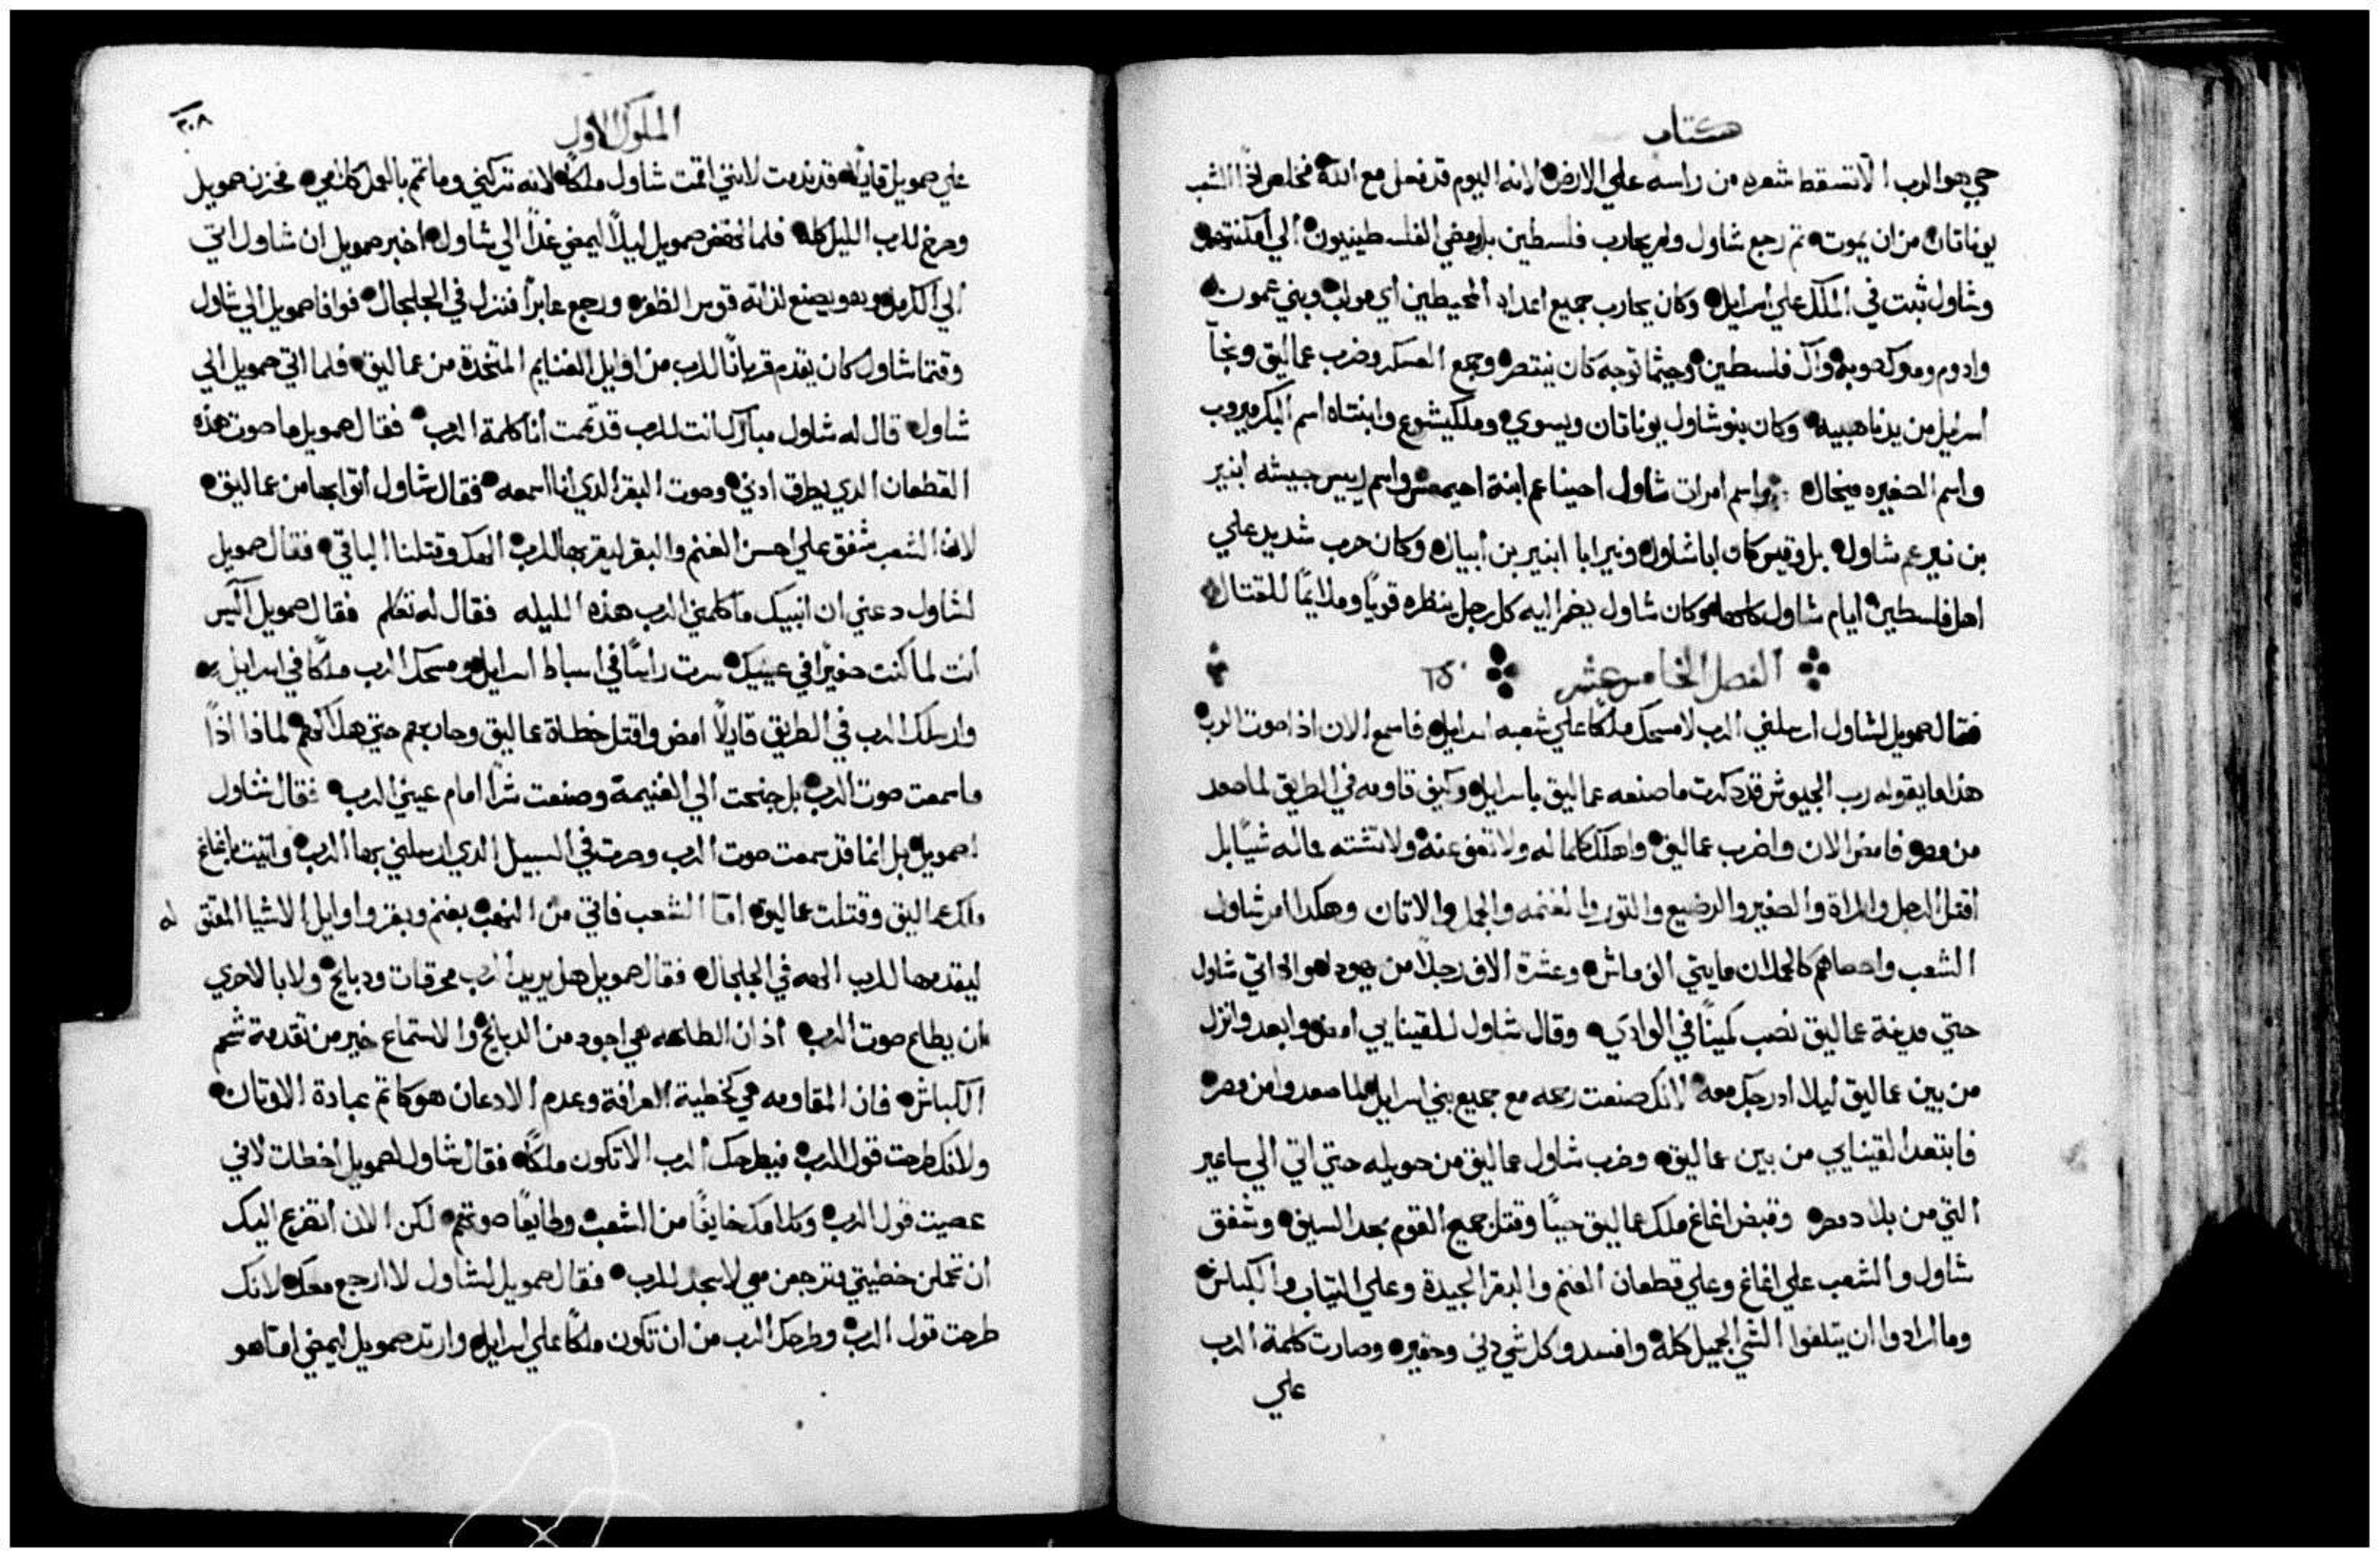 كتاب
حي هو الرب الا تسقط شعره من راسه علي الارض لانه اليوم قد فعل مع الله فخلص اذًا الشعب
يوناتان من ان يموت ثم رجع شاول ولم يحارب فلسطين بل ومضي الفلسطينيون الي امكنتهم
وشاول ثبت في الملك علي اسرايل وكان يحارب جميع اعدايه المحيطين اي مواب وبني عمون
وادوم وملوك صوبه وآل فلسطين وحيثما توجه كان ينتصر وجمع العسكر وضرب عماليق ونجا
اسرايل من يد ناهبيه وكان بنو شاول يوناتان ويسوي وملكيشوع وابنتاه اسم البكر ميروب
واسم الصغيره ميخال واسم امرات شاول احيناعم ابنة احيمعص واسم رييس جيشه ابنير
بن نير عم شاول بل وقيس كان ابا شاول ونير ابا ابنير بن ابيال وكان حرب شديد علي
اهل فلسطين ايام شاول كلها وكان شاول يضم اليه كل رجل ينظره قويًا وملايمًا للقتال
الفصل الخامس عشر ١٥
فقال صمويل لشاول ارسلني الرب لامسحك ملكًا علي شعبه اسرايل فاسمع الان اذا صوت الرب
هذا ما يقوله رب الجيوش قد ذكرت ما صنعه عماليق باسرايل وكيف قاومه في الطريق لما صعد
من مصر فامض الان واضرب عماليق واهلك كلما له ولا تعف عنه ولا تشته ماله شيًا بل
اقتل الرجل والمراة والصغير والرضيع والتور والغنمه والجمل والاتان وهكدا امر شاول
الشعب واحصاهم كالحملان مايتي الف ماش وعشرة الاف رجلًا من يهودا ولما اتي شاول
حتي مدينة عماليق نصب كمينًا في الوادي وقال شاول للقينايي امض وابعد وانزل
من بين عماليق ليلا ادرجك معه لانك صنعت رحمه مع جميع بني اسرايل لما صعدوا من مصر
فابتعد القينايي من بين عماليق وضرب شاول عماليق من حويله حتي اتي الي ساعير
التي من بلاد مصر وقبض اغاغ ملك عماليق حيًا وقتل جميع القوم بحد السيف وشفق
شاول والشعب علي اغاغ وعلي قطعان الغنم والبقر الجيدة وعلي التياب والكباش
وما ارادوا ان يتلفوا الشي الجميل كله وافسدو كل شي دني وحقير وصارت كلمة الرب
علي
الملوك الاول
٢٠٨
علي صمويل قايلًا قد ندمت لانني اقمت شاول ملكًا لانه تركني وما تم بالعمل كلامي فحزن صمويل
وصرخ للرب الليل كله فلما نهض صمويل ليلًا ليمضي غدًا الي شاول اخبر صمويل ان شاول اتي
الي الكرمل وهو يصنع لذاته قوس الظفر ورجع عابرًا فنزل في الجلجال فوافا صمويل الي شاول
وقتما شاول كان يقدم قربانًا للرب من اوايل الغنايم المتخدة من عماليق فلما اتي صمويل الي
شاول قال له شاول مبارك انت للرب قد تممت انا كلمة الرب فقال صمويل ما صوت هذه
القطعان الدي يطرق ادني وصوت البقر الدي انا اسمعه فقال شاول اتوا بها من عماليق
لان الشعب شفق علي احسن الغنم والبقر ليقربها للرب الهك وقتلنا الباقي فقال صمويل
لشاول دعني ان انبيك ما كلمني الرب هذه الليله فقال له تكلم فقال صمويل اليس
انت لما كنت صغيرًا في عينيك صرت راسًا في اسباط اسرايل ومسحك الرب ملكًا في اسرايل
وارسلك الرب في الطريق قايلًا امض واقتل خطاة عماليق وحاربهم حتي هلاكهم لماذا اذًا
ما سمعت صوت الرب بل جنحت الي الغنيمة وصنعت شرًا امام عيني الرب فقال شاول
لصمويل بل انما قد سمعت صوت الرب وصرت في السبيل الدي ارسلني بها الرب واتيت باغاغ
ملك عماليق وقتلت عماليق امّا الشعب فاتي من النهب بغنم وبقر واوايل الاشيا المقتتله
ليقدمها للرب الهه في الجلجال فقال صمويل هل يريد الرب محرقات ودبايح ولا بالاحري
ان يطاع صوت الرب اذ ان الطاعه هي اجود من الدبايح والاستماع خير من تقدمة شحم
الكباش فان المقاومه هي كخطية العرافة وعدم الادعان هو كاتم عبادة الاوتان
ولانك طرحت قول الرب فيطرحك الرب الا تكون ملكًا فقال شاول لصمويل اخطات لاني
عصيت قول الرب وكلامك خايفًا من الشعب وطايعًا صوتهم لكن الان اتضرع اليك
ان تحملن خطيتي وترجعن معي لاسجد للرب فقال صمويل لشاول لا ارجع معك لانك
طرحت قول الرب وطرحك الرب من ان تكون ملكًا علي اسرايل وارتد صمويل ليمضي امّا هو